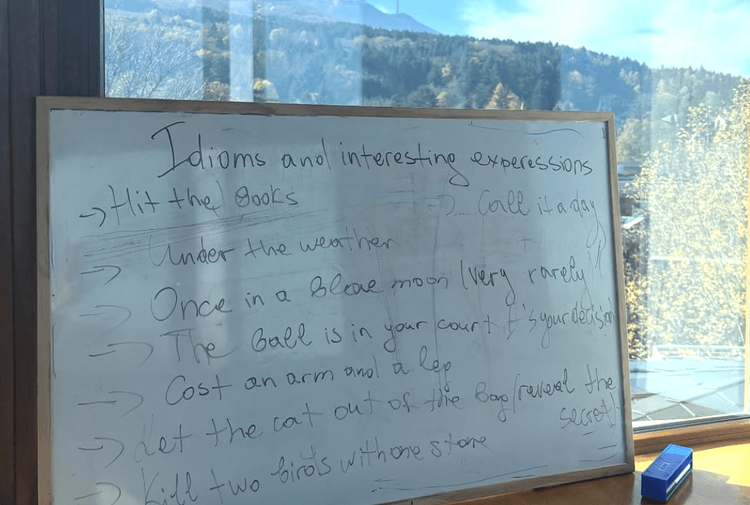 Idioms and interesting experessions
→ Hit the Books
→ Call it a day
→ Under the weather
→ Once in a Bleae moon (very rarely)
→ The Ball is in your court It's your decision
→ Cost an arm and a leg
→ Let the cat out of the Bag (reveal the
secret)
→ Kill two birds with one stone